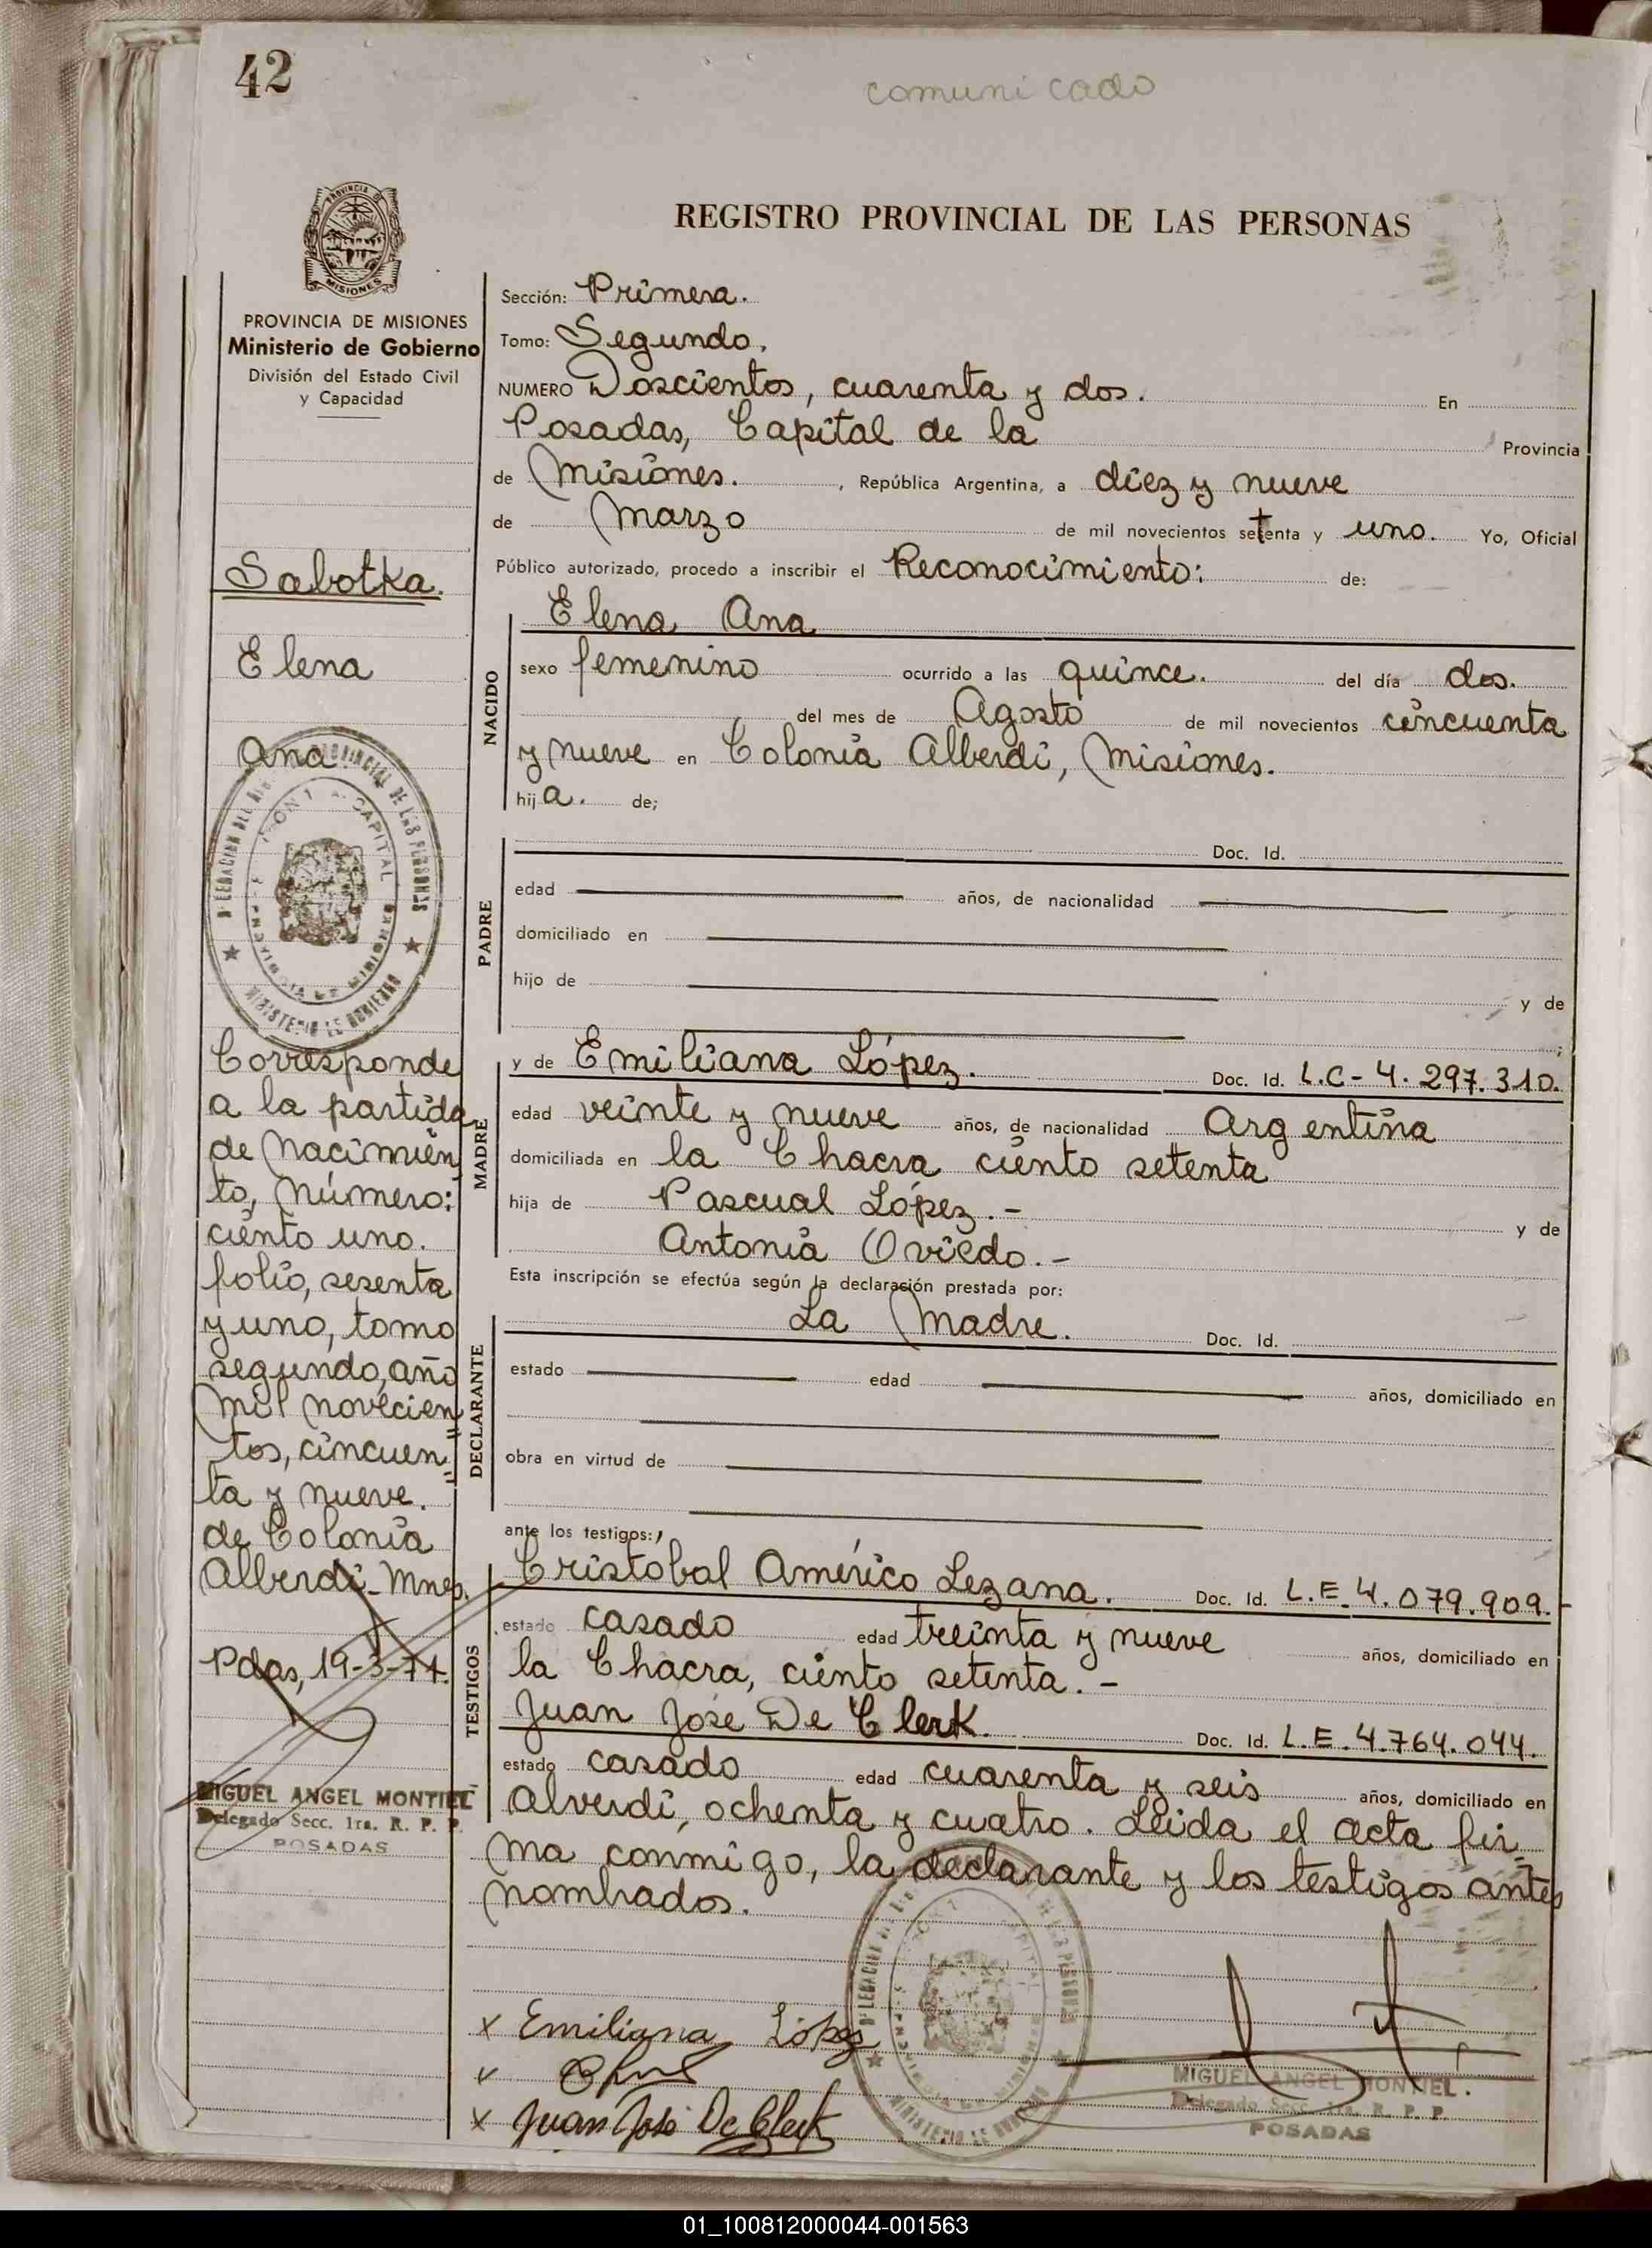 42
comunicado
PROVINCIA DE
MISIONES
PROVINCIA DE MISIONES
Ministerio de Gobierno
División del Estado Civil
y Capacidad
REGISTRO PROVINCIAL DE LAS PERSONAS
Sección: Primera.
Tomo: Segundo.
NUMERO Doscientos, cuarenta y dos. En
Posadas, Capital de la Provincia
de Misiones. , República Argentina, a diez y nueve
de Marzo de mil novecientos setenta y uno. Yo, Oficial
Público autorizado, procedo a inscribir el Reconocimiento: de:
NACIDO
Elena Ana
sexo femenino ocurrido a las quince. del día dos.
del mes de Agosto de mil novecientos cincuenta
y nueve en Colonia Alberdi, Misiones.
hija. de;
PADRE
Doc. Id.
edad años, de nacionalidad
domiciliado en
hijo de y de
;
MADRE
y de Emiliana López. Doc. Id. L.C-4.297.310.
edad veinte y nueve años, de nacionalidad Argentina
domiciliada en la Chacra ciento setenta
hija de Pascual López.- y de
Antonia Oviedo.-
Esta inscripción se efectúa según la declaración prestada por:
DECLARANTE
La Madre. Doc. Id.
estado edad años, domiciliado en
obra en virtud de
ante los testigos:
TESTIGOS
Cristobal Américo Lezana. Doc. Id. L.E.4.079.909.-
estado casado edad treinta y nueve años, domiciliado en
la Chacra, ciento setenta.-
Juan José De Clerk. Doc. Id. L.E.4.764.044.
estado casado edad cuarenta y seis años, domiciliado en
Alverdi, ochenta y cuatro. Leida el acta fir=
ma conmigo, la declarante y los testigos antes
nombrados.
x Emiliana López
x Juan José De Clerk
MIGUEL ANGEL MONTIEL.
Delegado Secc. 1ra. R. P. P.
POSADAS
Sabotka.
Elena
Ana
DELEGACION DEL REGISTRO PROVINCIAL DE LAS PERSONAS
MINISTERIO DE GOBIERNO
CAPITAL
PROVINCIA DE MISIONES
Corresponde
a la partida
de Nacimien
to, Número:
ciento uno.
folio, sesenta
y uno, tomo
segundo, año
Mil novecien=
tos, cincuen=
ta y nueve.
de Colonia
Alberdi-Mnes.
Pdas, 19-3-71.
MIGUEL ANGEL MONTIEL
Delegado Secc. 1ra. R. P. P.
POSADAS
01_100812000044-001563